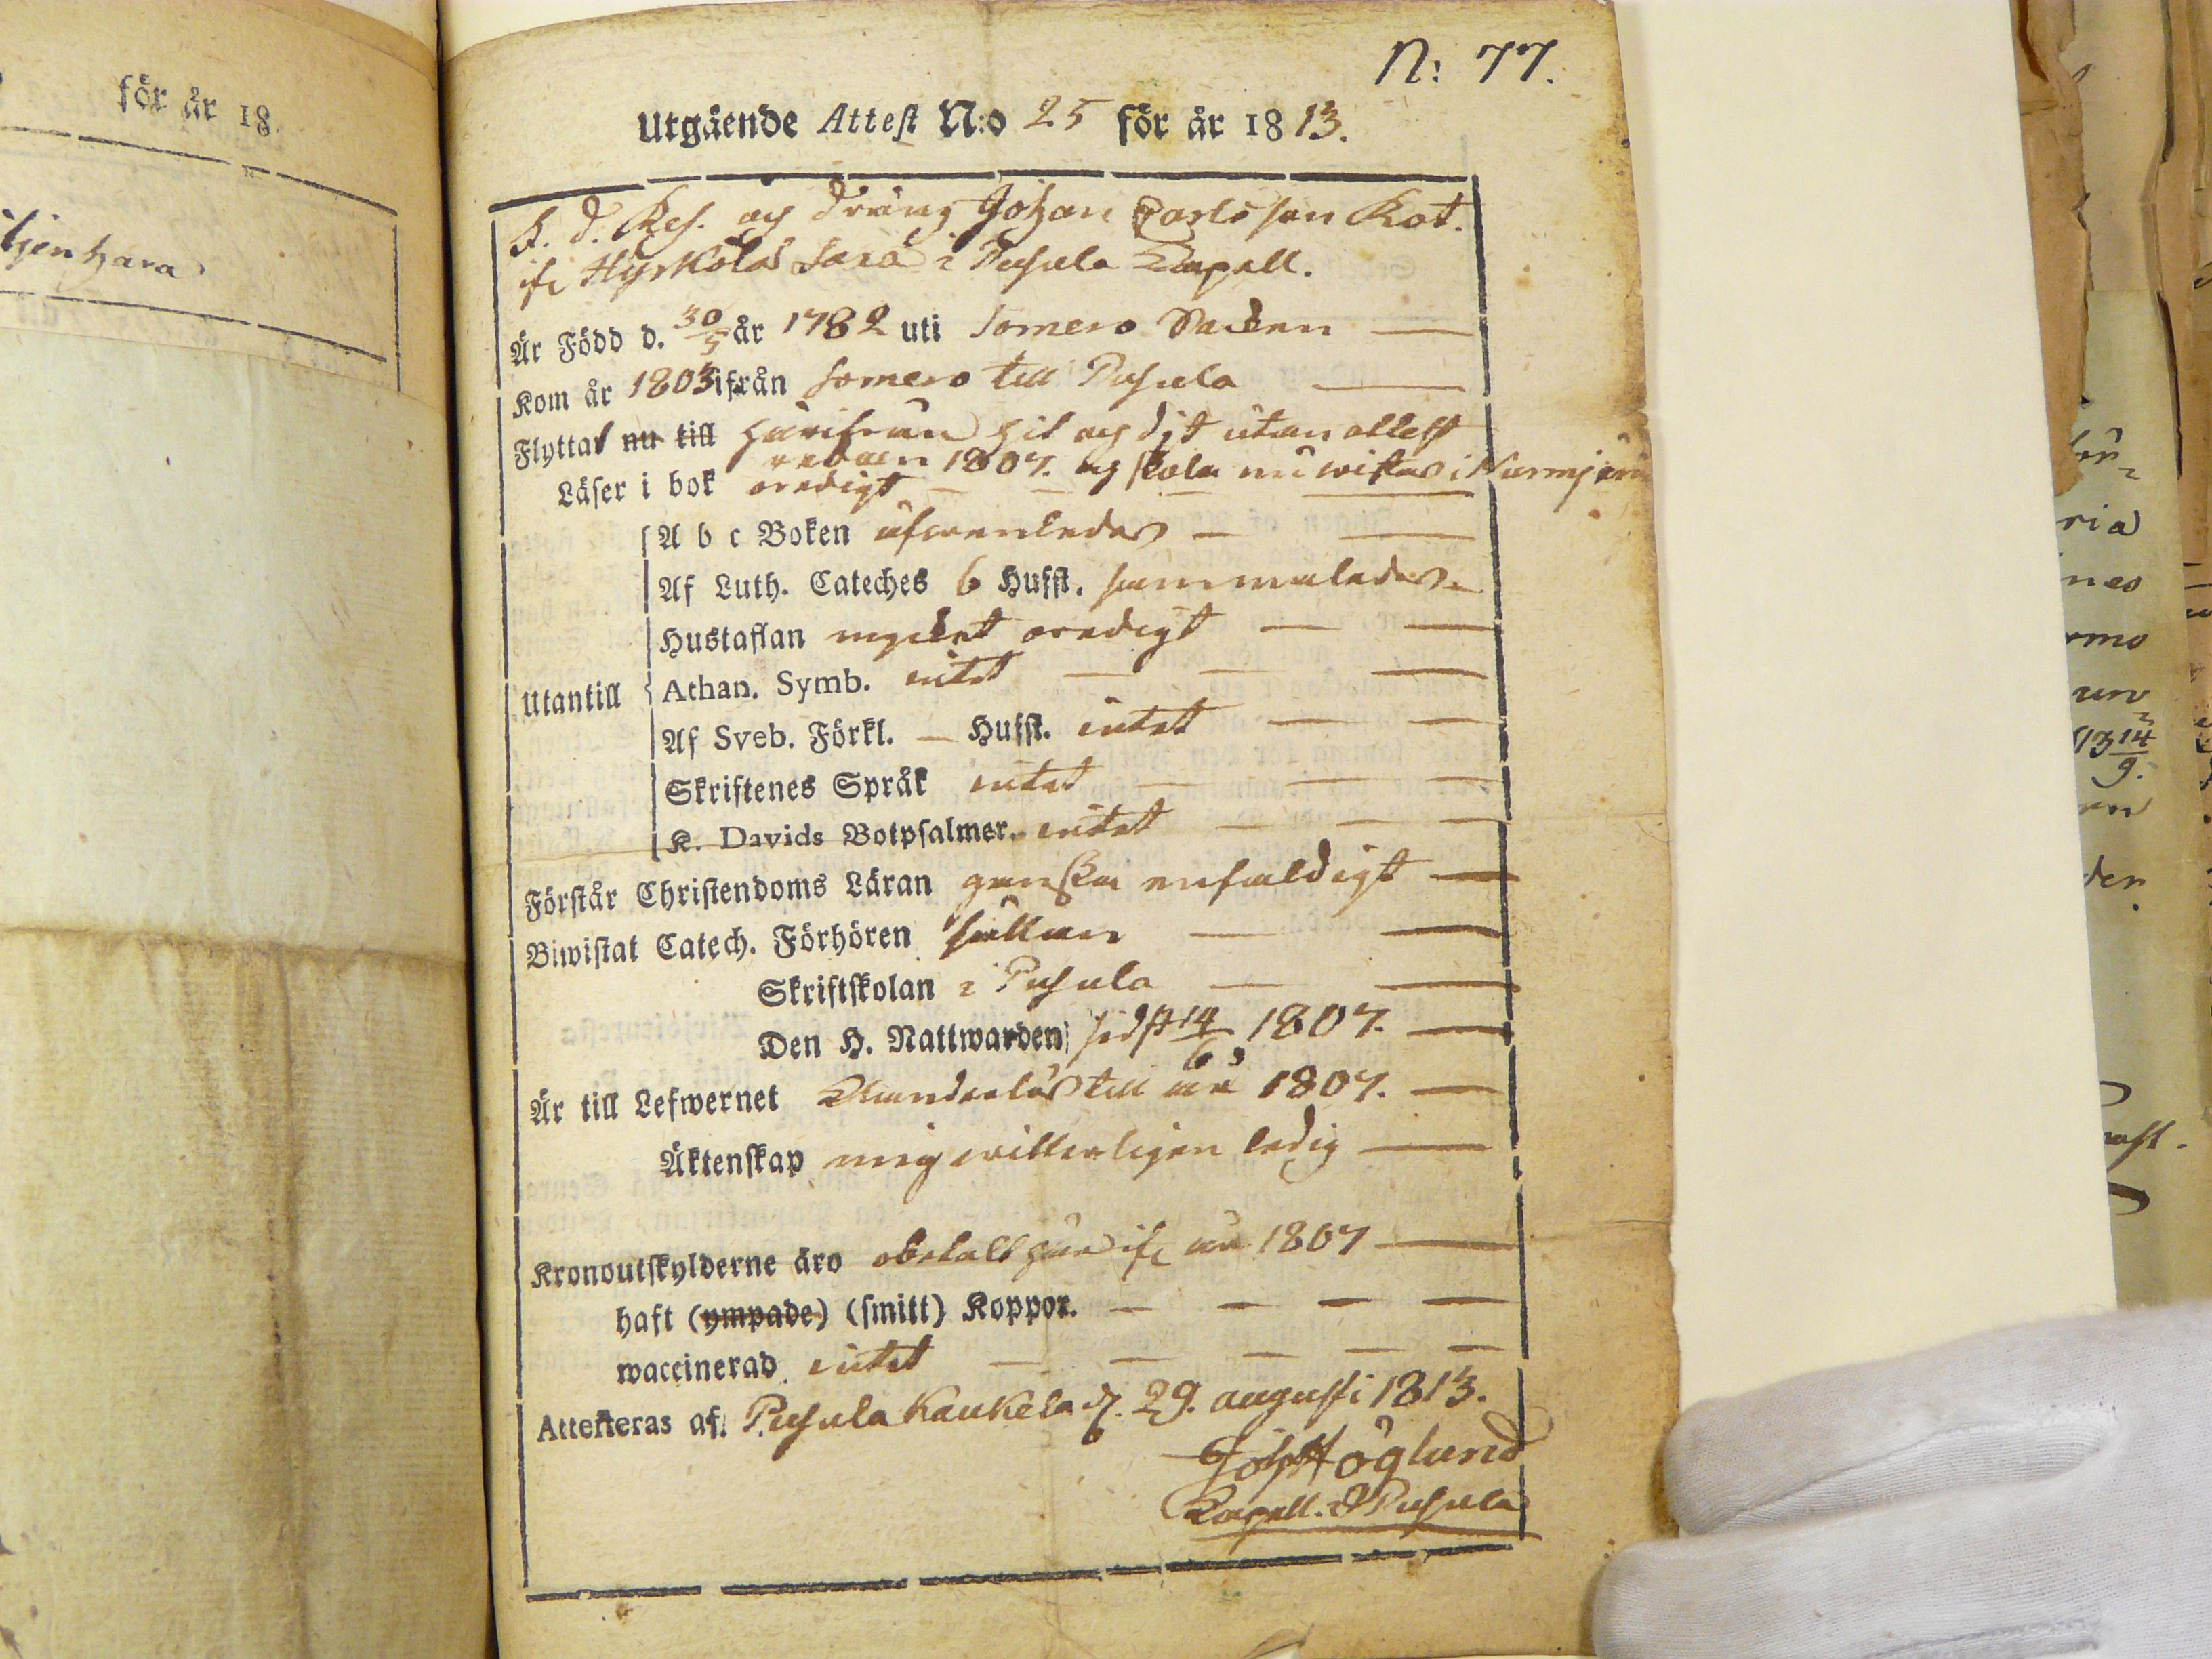 för år 18
N: 77.
Utgående Attest N:o 25 för år 1813.
f. d. Res. och dräng Johan Carlsson Kot.
ifr Hyrkölä Sara i Pusula Capell.
Är Född d. 30/5 år 1782 uti Somero Socken
Kom år 1803 ifrån Somero till Pusula
Flyttat nu till härifrån hit och dit utan attest
redan 1807. och skola nu wistas i Nurmijärvi
Läser i bok oredigt
Utantill
A b c Boken äfwenledes
Af Luth. Cateches 6 Hufst. sammaledes
Hustaflan mycket oredigt
Athan. Symb. intet
Af Sveb. Förkl. — Hufst. intet
Skriftenes Språk intet
K. Davids Botpsalmer. intet
Förstår Christendoms Läran ganska enfaldigt
Biwistat Catech. Förhören sällan
Skriftskolan i Pusula
Den H. Nattwarden sidst 14/6 1807.
Är till Lefwernet Klanderlös till år 1807.
Äktenskap mig witterligen ledig
Kronoutskylderne äro obetalt här ifr år 1807
haft (ympade) (smitt) Koppor.
waccinerad intet
Attesteras af. Pusula Kaukela d. 29. augusti 1813.
Joh Höglund
Capell. i Pusula
ria
nes
rmo
1814/9.
der.